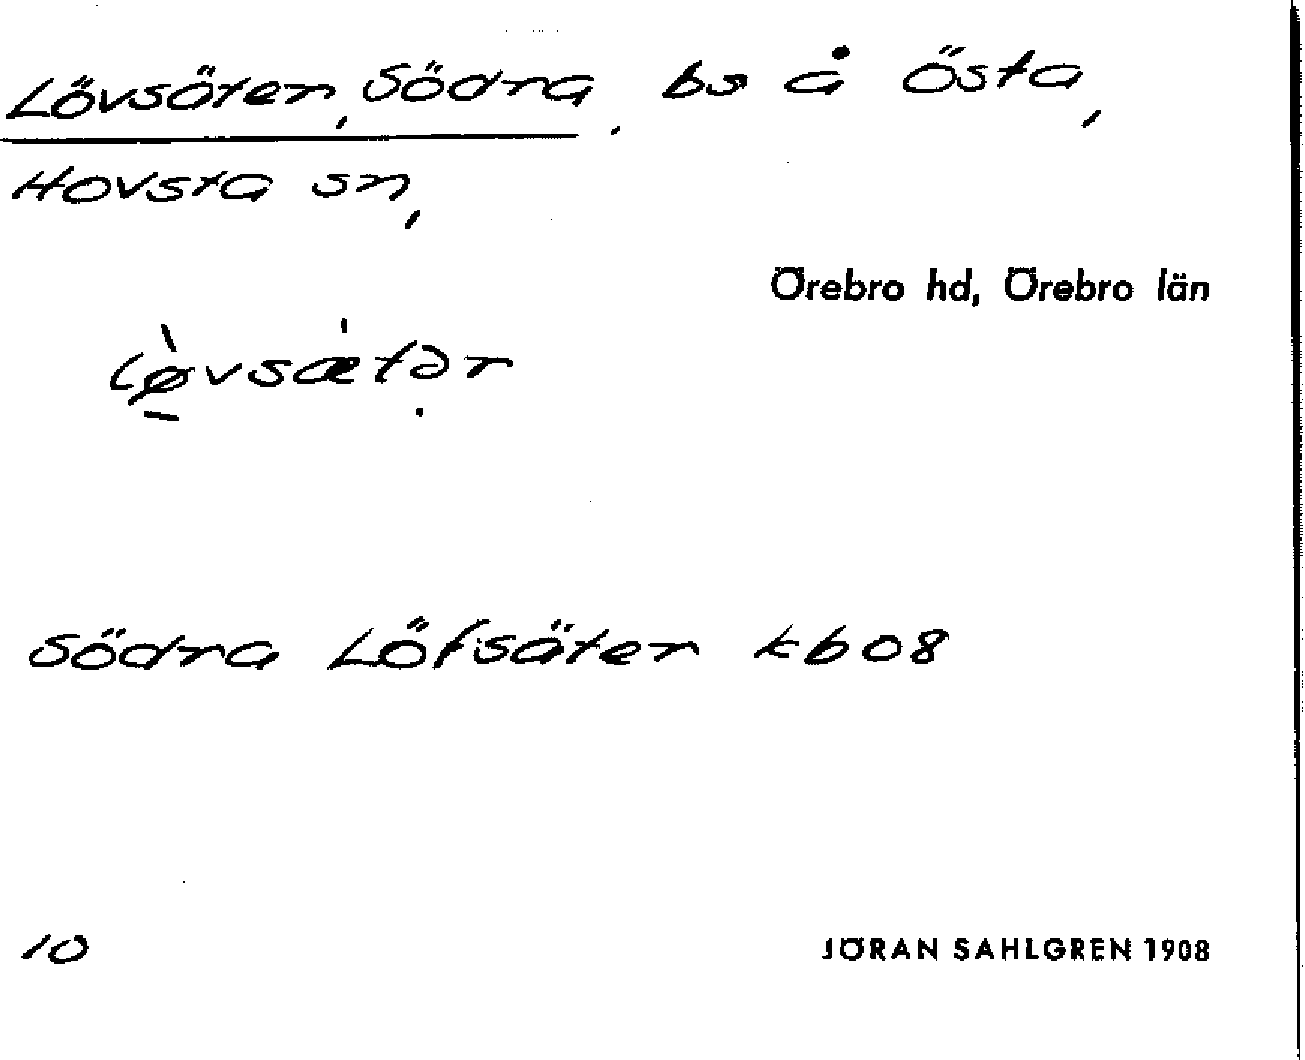 Lövsäter, Södra, bs å Östa,
Hovsta sn,
Örebro hd, Örebro län
lø̀vsæ̍tər
Södra Löfsäter kb08
10
JÖRAN SAHLGREN 1908